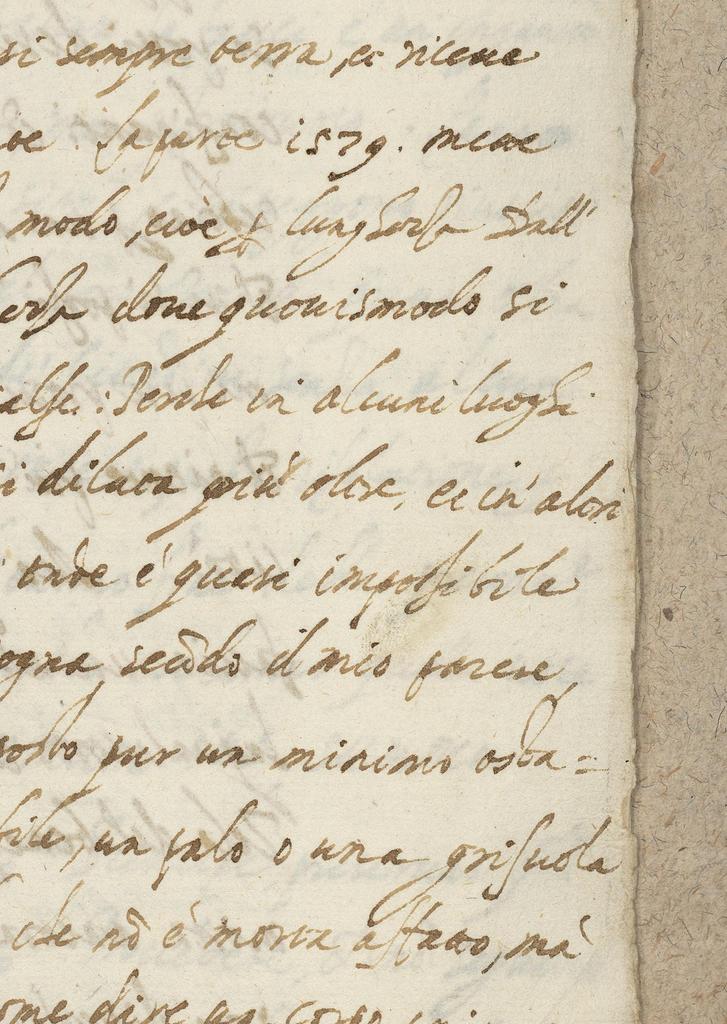 si sempre terra, et riceue
La parte 1579. mette
modo, cioè lunghezza dall'
doue quouismodo si
Perche in alcuni luoghi
si dilata più oltre, et in altri
onde è quasi impossibile
ogna secōdo il mio parere
pur un minimo osta=
bile, un palo o una grisuola
che nō è morta affatto, mà
ome dire un corpo